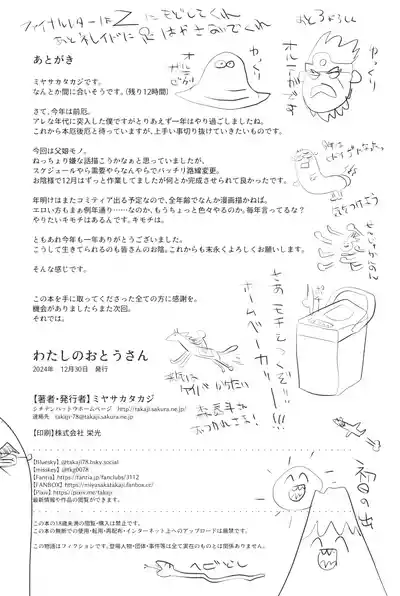 ファイナルレターはZにもどしてくれ
あとろろい
あとがき
ミヤサカタカジです。
なんとか間に合いそうです。(残り12時間)
さて、今年は前厄。
アレな年代に突入した僕ですがとりあえず一年はやり過ごしましたね。
これから本厄後厄と待っていますが、上手い事切り抜けていきたいものです。
今回は父娘モノ。
ねっちょり嫌な話描こうかなぁと思っていましたが、
スケジュールやら需要やらなんやらでバッチリ路線変更。
お陰様で12月はずっと作業してましたが何とか完成させられて良かったです。
年明けはまたコミティア出る予定なので、全年齢でなんか漫画描かねば。
エロい方もまぁ例年通り……なのか、もうちょっと色々やるのか。毎年言ってるな?
やりたいキモチはあるんです。キモチは。
ともあれ今年も一年ありがとうございました。
こうして生きてられるのも皆さんのお陰。これからも末永くよろしくお願いします。
そんな感じです。
この本を手に取ってくださった全ての方に感謝を。
機会がありましたらまた次回。
それでは。
ゆっくり
オルテガ
ゆっくり
オルテガです
さあモチをつくぞ!!!
ホームベーカリーー!!
わたしのおとうさん
2024年 12月30日 発行
【著者・発行者】ミヤサカタカジ
シチテンハットウホームページ http://takaji.sakura.ne.jp/
連絡先 takaji-78@takaji.sakura.ne.jp
【印刷】株式会社 栄光
[Bluesky] @takaji78.bsky.social
[misskey] @tkg0078
[Fantia] https://fantia.jp/fanclubs/3112
[FANBOX] https://miyasakatakaji.fanbox.cc/
[Pixiv] https://pixiv.me/takap
最新情報や作品の閲覧ができます。
この本の18歳未満の閲覧・購入は禁止です。
この本の無断での使用・転用・再配布・インターネット上へのアップロードは厳禁です。
この物語はフィクションです。登場人物・団体・事件等は全て実在のものとは関係ありません。
初日の出
ヘビどし